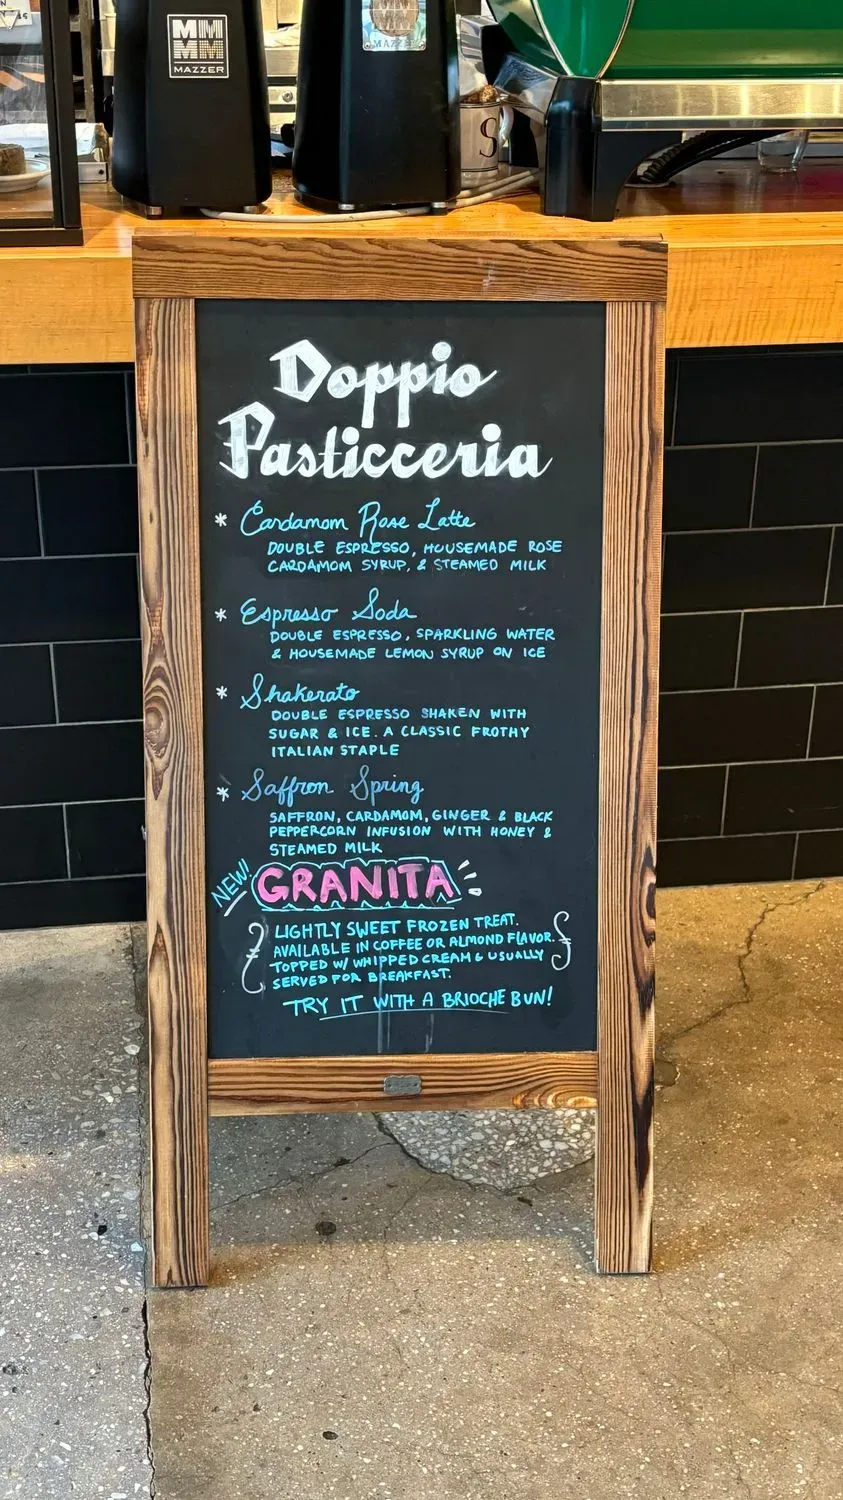 MMM
MM
MAZZER
MAZZER
S
Doppio
Pasticceria
* Cardamom Rose Latte
DOUBLE ESPRESSO, HOUSEMADE ROSE
CARDAMOM SYRUP, & STEAMED MILK
* Espresso Soda
DOUBLE ESPRESSO, SPARKLING WATER
& HOUSEMADE LEMON SYRUP ON ICE
* Shakerato
DOUBLE ESPRESSO SHAKEN WITH
SUGAR & ICE. A CLASSIC FROTHY
ITALIAN STAPLE
* Saffron Spring
SAFFRON, CARDAMOM, GINGER & BLACK
PEPPERCORN INFUSION WITH HONEY &
STEAMED MILK
NEW! GRANITA
LIGHTLY SWEET FROZEN TREAT.
AVAILABLE IN COFFEE OR ALMOND FLAVOR.
TOPPED W/ WHIPPED CREAM & USUALLY
SERVED FOR BREAKFAST.
TRY IT WITH A BRIOCHE BUN!